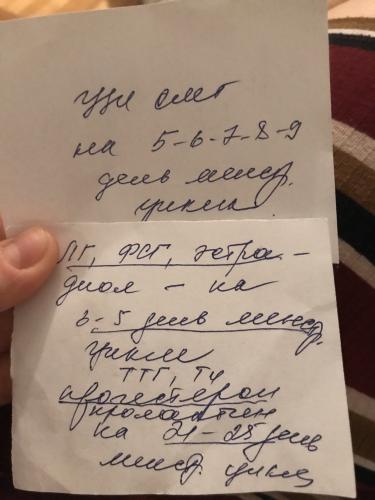 узи омт
на 5-6-7-8-9
день менстр.
цикла.
ЛГ, ФСГ, эстра-
диол - на
3-5 день менстр.
цикла
ТТГ, Т4
прогестерон
пролактин
на 21-25 день
менстр. цикла